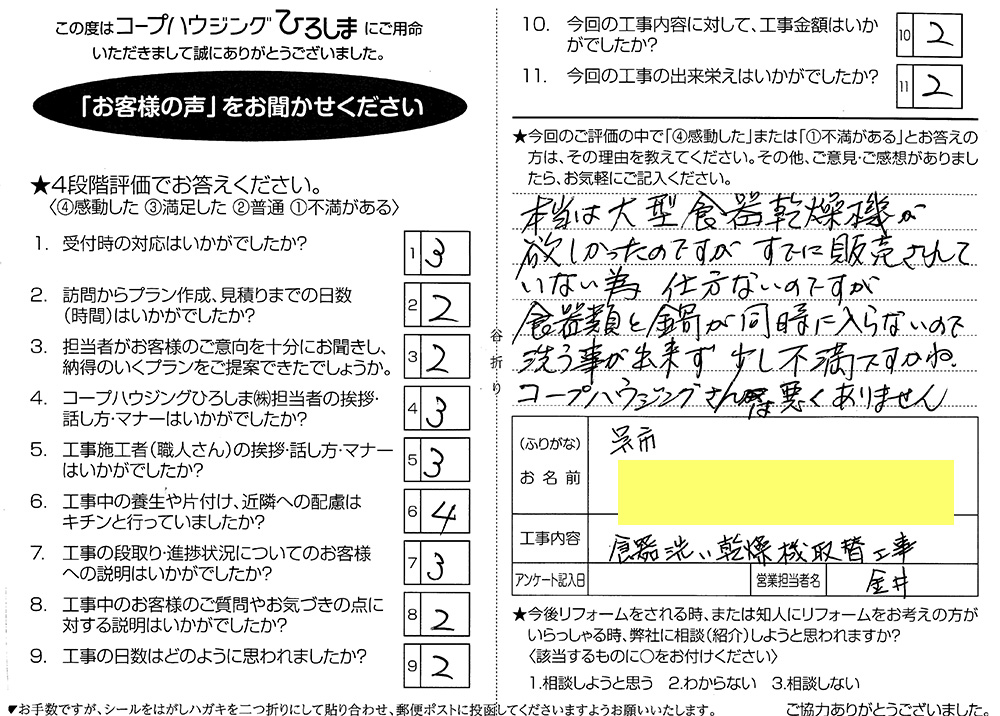 この度はコープハウジングひろしまにご用命
いただきまして誠にありがとうございました。
「お客様の声」をお聞かせください
★4段階評価でお答えください。
〈④感動した ③満足した ②普通 ①不満がある〉
1. 受付時の対応はいかがでしたか?
1 3
2. 訪問からプラン作成、見積りまでの日数
(時間)はいかがでしたか?
2 2
3. 担当者がお客様のご意向を十分にお聞きし、
納得のいくプランをご提案できたでしょうか。
3 2
4. コープハウジングひろしま㈱担当者の挨拶・
話し方・マナーはいかがでしたか?
4 3
5. 工事施工者(職人さん)の挨拶・話し方・マナー
はいかがでしたか?
5 3
6. 工事中の養生や片付け、近隣への配慮は
キチンと行っていましたか?
6 4
7. 工事の段取り・進捗状況についてのお客様
への説明はいかがでしたか?
7 3
8. 工事中のお客様のご質問やお気づきの点に
対する説明はいかがでしたか?
8 2
9. 工事の日数はどのように思われましたか?
9 2
☛お手数ですが、シールをはがしハガキを二つ折りにして貼り合わせ、郵便ポストに投函してくださいますようお願いいたします。
谷折り
10. 今回の工事内容に対して、工事金額はいか
がでしたか?
10 2
11. 今回の工事の出来栄えはいかがでしたか?
11 2
★今回のご評価の中で「④感動した」または「①不満がある」とお答えの
方は、その理由を教えてください。その他、ご意見・ご感想がありまし
たら、お気軽にご記入ください。
本当は大型食器乾燥機が
欲しかったのですが すでに販売されて
いない為 仕方ないのですが
食器類と鍋が同時に入らないので
洗う事が出来ず 少し不満ですかね。
コープハウジングさんは悪くありません
(ふりがな)
お名前
呉市
工事内容
食器洗い乾燥機取替工事
アンケート記入日
営業担当者名
金井
★今後リフォームをされる時、または知人にリフォームをお考えの方が
いらっしゃる時、弊社に相談(紹介)しようと思われますか?
〈該当するものに○をお付けください〉
1.相談しようと思う 2.わからない 3.相談しない
ご協力ありがとうございました。